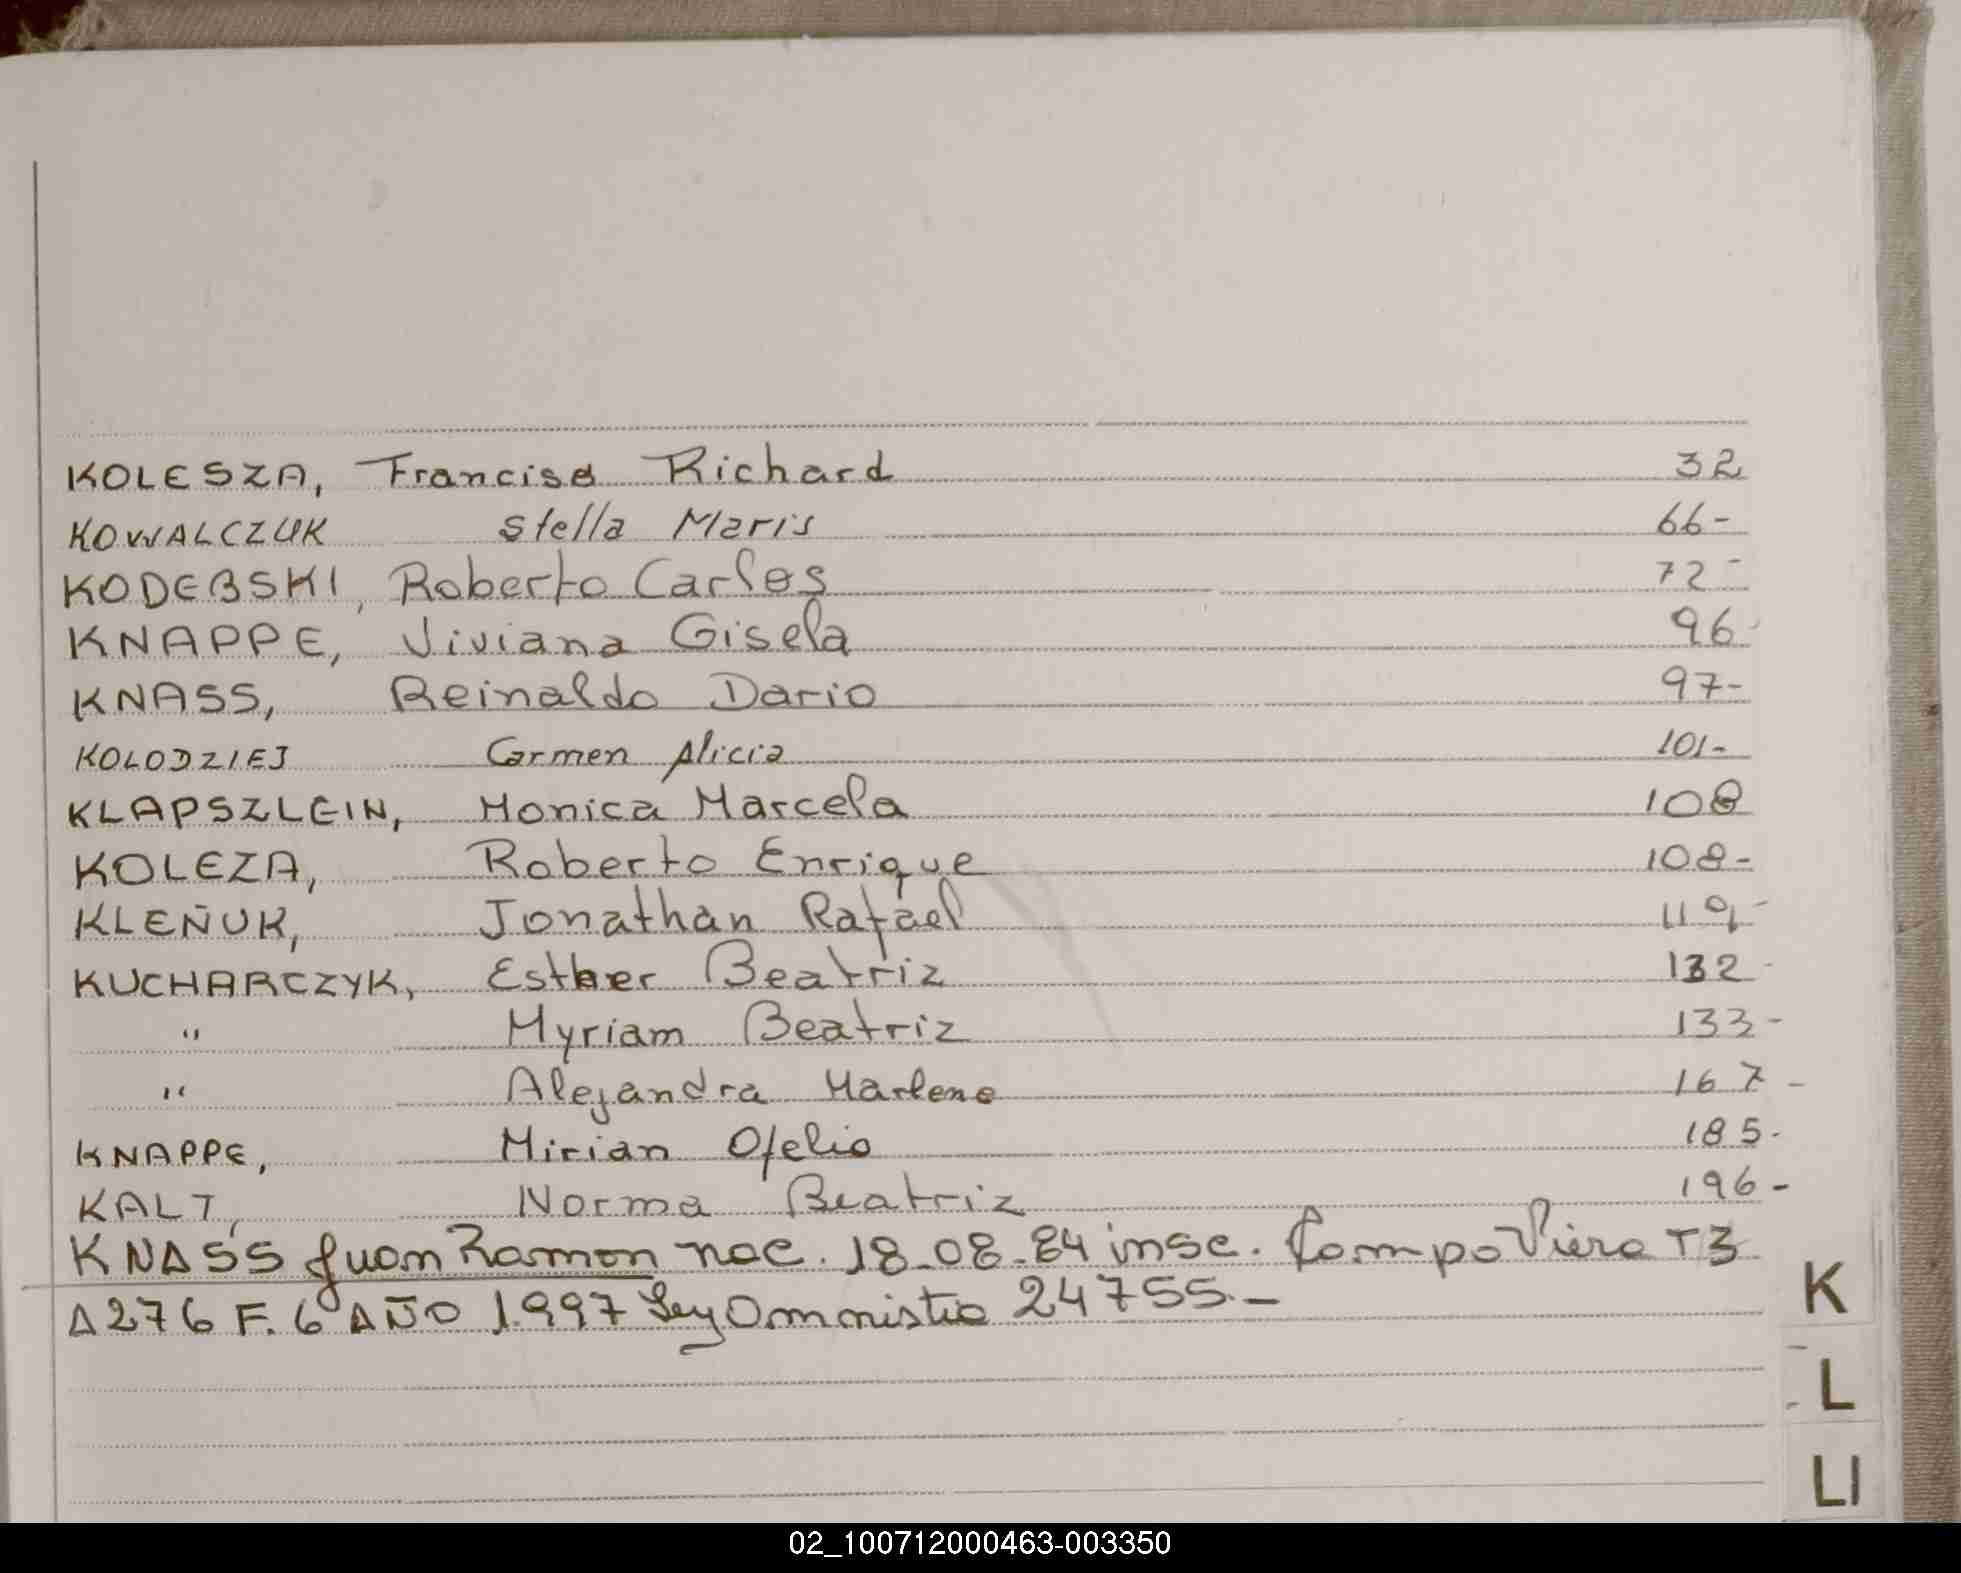 KOLESZA, Francisco Richard 32
KOWALCZUK Stella Maris 66-
KODEBSKI, Roberto Carlos 72-
KNAPPE, Viviana Gisela 96
KNASS, Reinaldo Dario 97-
KOLODZIEJ Carmen Alicia 101-
KLAPSZLEIN, Monica Marcela 108
KOLEZA, Roberto Enrique 108-
KLEÑUK, Jonathan Rafael 119-
KUCHARCZYK, Esther Beatriz 132-
" Myriam Beatriz 133-
" Alejandra Marlene 167-
KNAPPE, Mirian Ofelia 185-
KALT, Norma Beatriz 196-
KNASS Juan Ramon nac. 18-08-84 insc. Campo Viera T3
A276 F. 6 AÑO 1.997 Ley Omnistia 24755.-
K
L
Ll
02_100712000463-003350